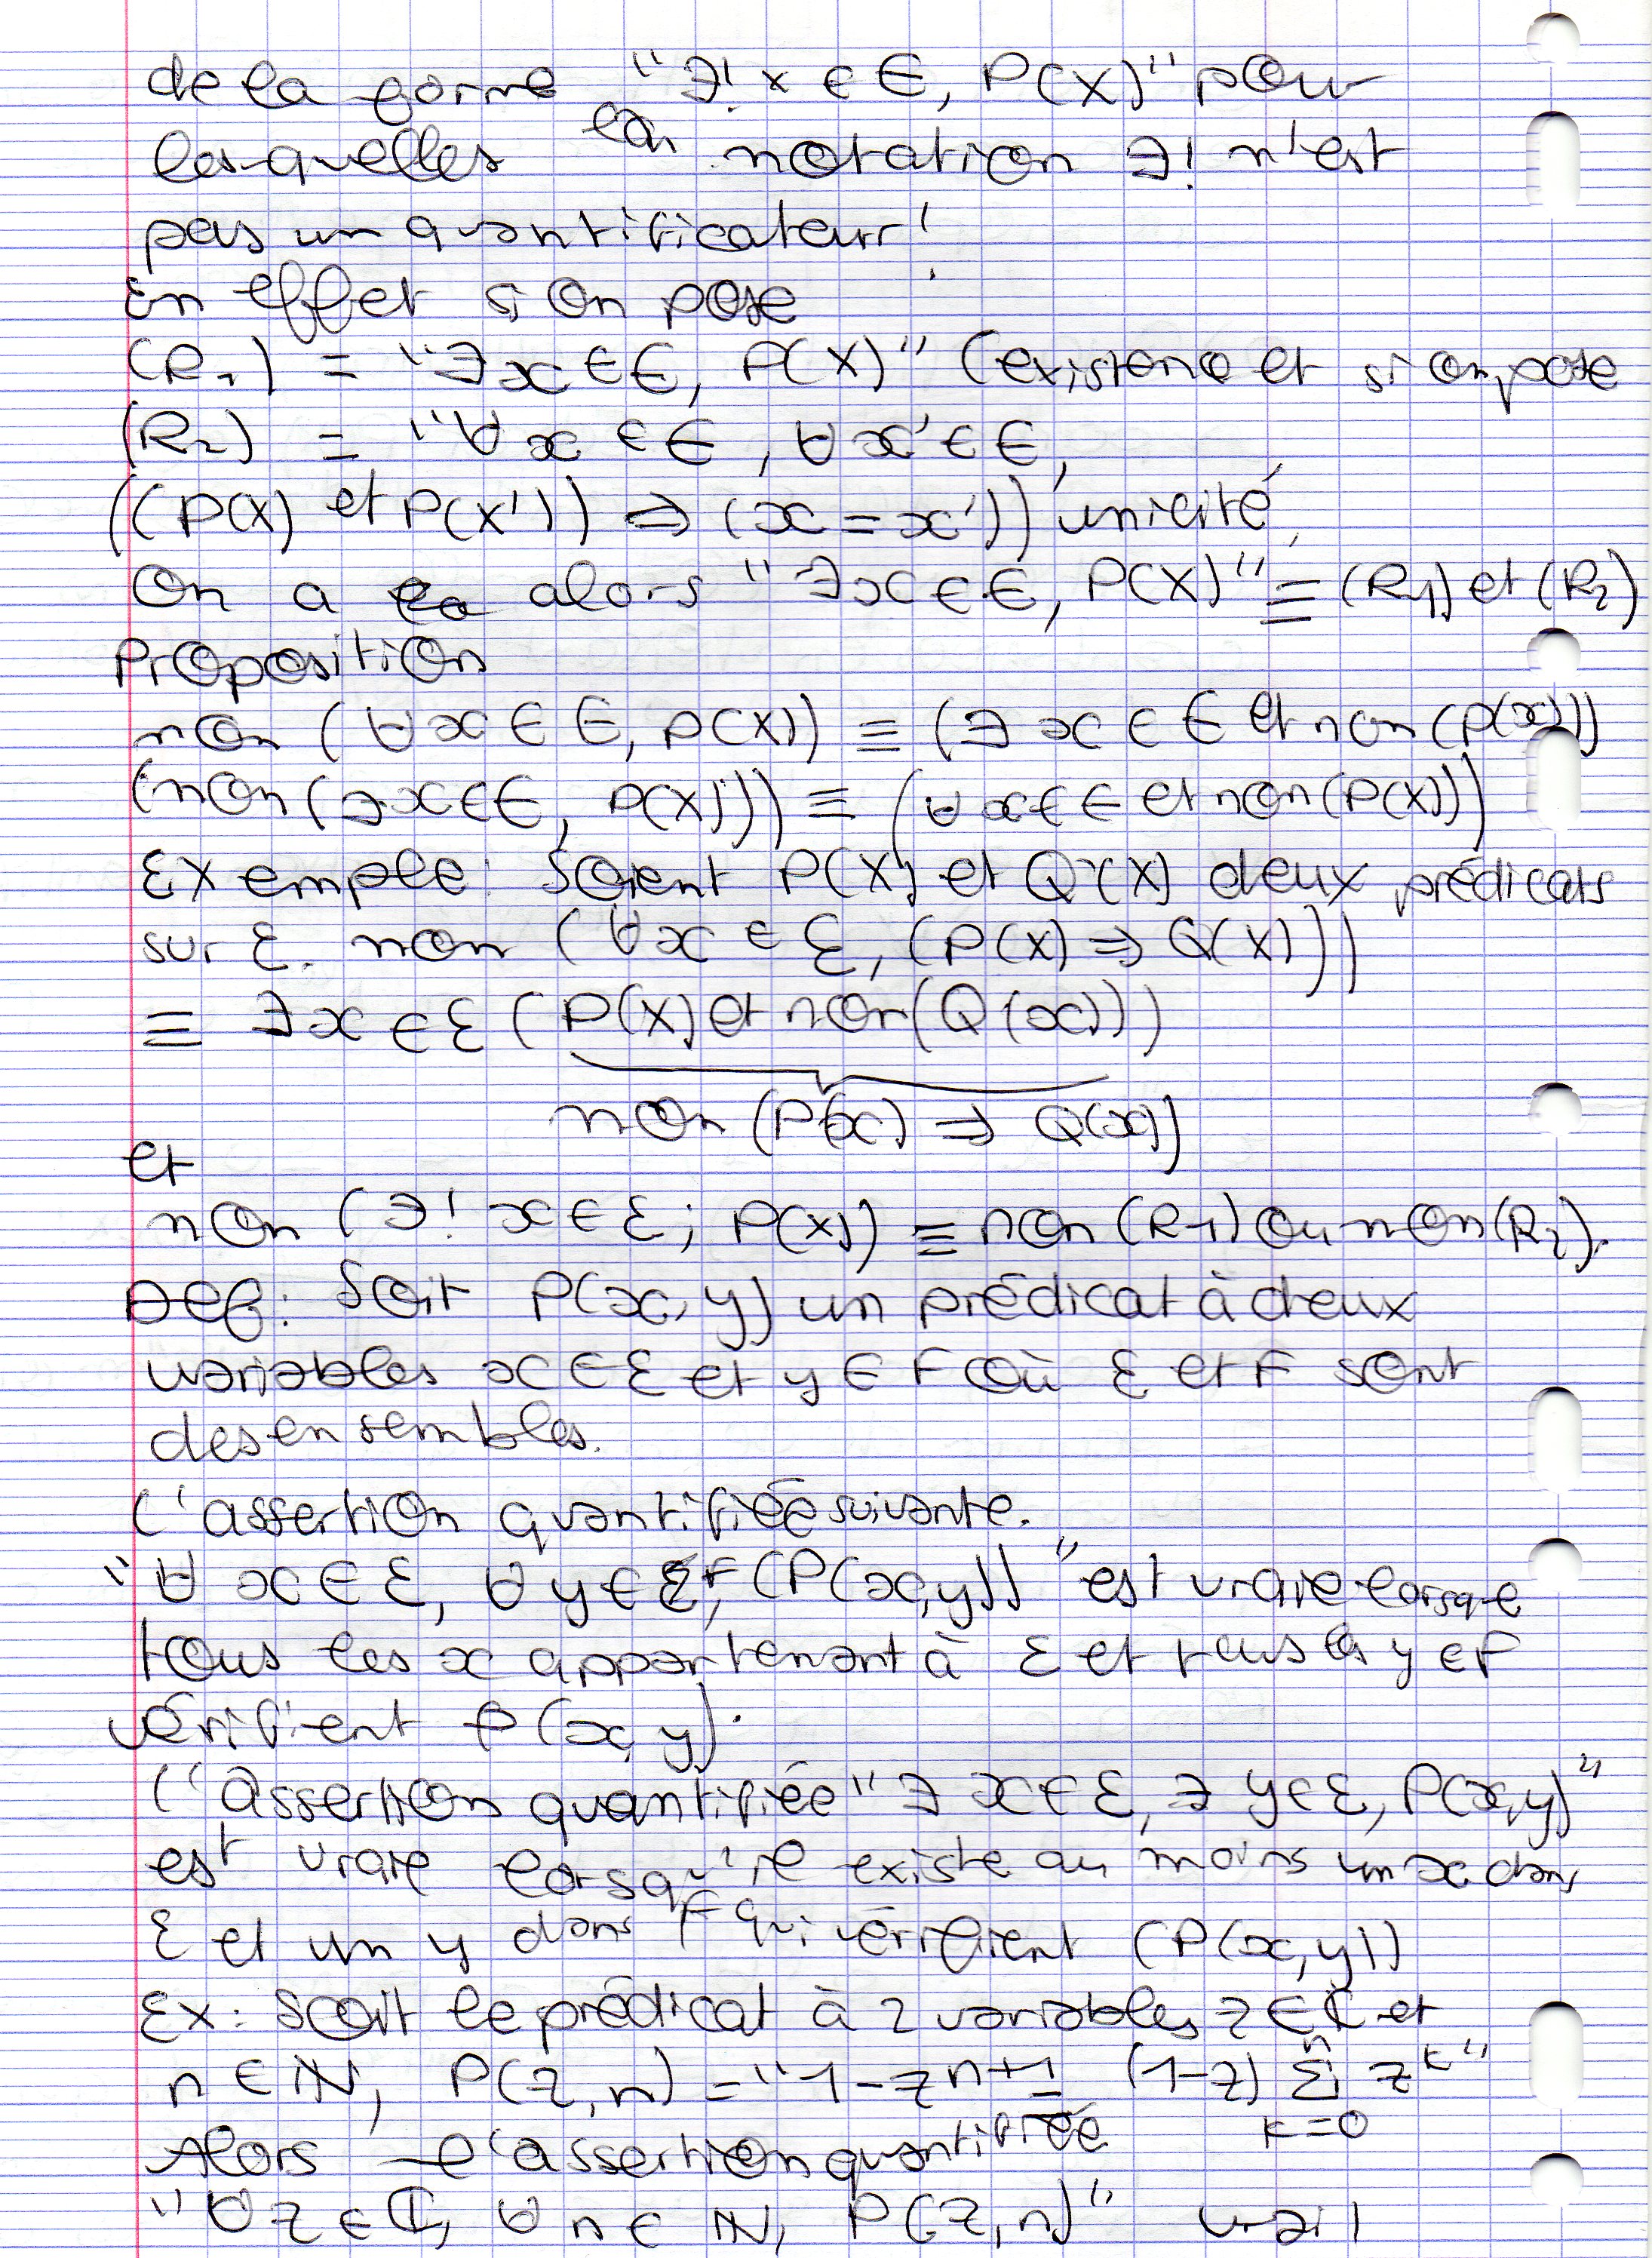 de la forme "∃! x ∈ E, P(X)" pour
lesquelles la notation ∃! n'est
pas un quantificateur!
En effet si on pose
(R1) = "∃x ∈ E, P(X)" (existence et si on pose
(R2) = "∀x ∈ E, ∀x' ∈ E,
((P(X) et P(X')) ⇒ (x = x')) unicité.
On a alors "∃x ∈ E, P(X)" ≡ (R1) et (R2)
Proposition
non (∀x ∈ E, P(X)) ≡ (∃ x ∈ E et non (P(x)))
(non (∃x ∈ E, P(X))) ≡ (∀x ∈ E et non (P(X)))
Exemple: Soient P(X) et Q(X) deux prédicats
sur E. non (∀x ∈ E, (P(X) ⇒ Q(X)))
≡ ∃x ∈ E (P(X) et non (Q(x)))
non (P(x) ⇒ Q(x))
et
non (∃! x ∈ E; P(X)) ≡ non (R1) ou non (R2).
Def: Soit P(x, y) un prédicat à deux
variables x ∈ E et y ∈ F où E et F sont
des ensembles.
L'assertion quantifiée suivante.
"∀ x ∈ E, ∀ y ∈ F, (P(x,y))" est vraie lorsque
tous les x appartenant à E et tous les y ∈ F
vérifient P(x, y).
L'assertion quantifiée "∃ x ∈ E, ∃ y ∈ E, P(x,y)"
est vraie lorsqu'il existe au moins un x dans
E et un y dans F qui vérifient (P(x,y))
Ex: Soit le prédicat à 2 variables z ∈ ℂ et
n ∈ ℕ, P(z, n) = "1-z^{n+1} = (1-z) Σ_{k=0}^{n} z^k"
Alors l'assertion quantifiée
"∀ z ∈ ℂ, ∀ n ∈ ℕ, P(z, n)" vrai!